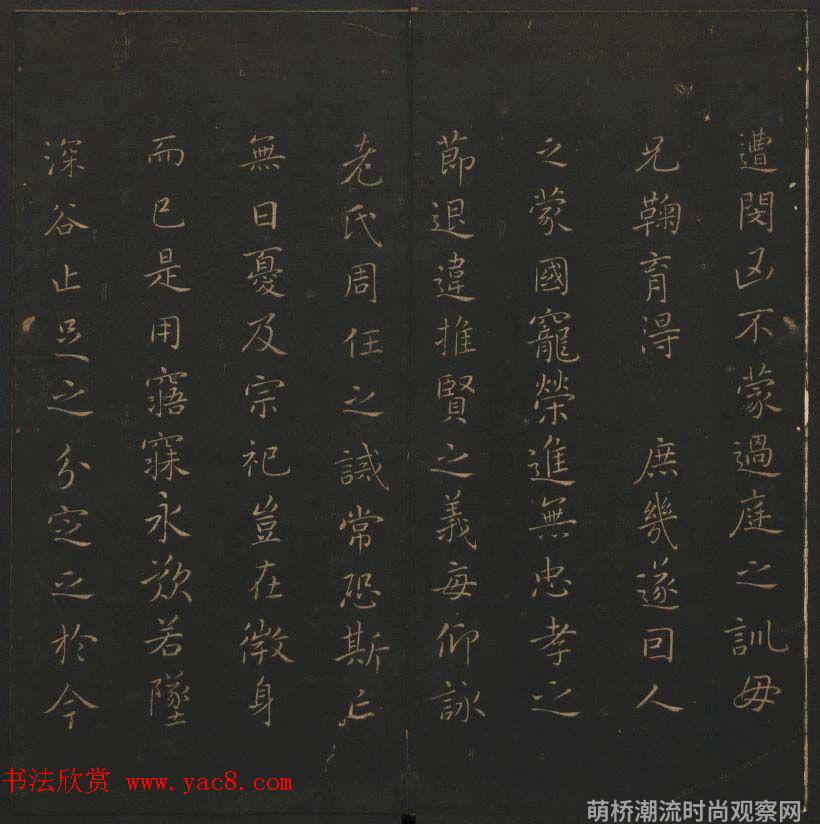 遭閔凶不蒙過庭之訓毋
兄鞠育得 庶幾遂回人
之蒙國寵榮進無忠孝之
節退違推賢之義每仰詠
老氏周任之誡常恐斯亡
無日憂及宗祀豈在微身
而已是用寤寐永歎若墜
深谷止足之分定之於今
书法欣赏 www.yac8.com
萌桥潮流时尚观察网